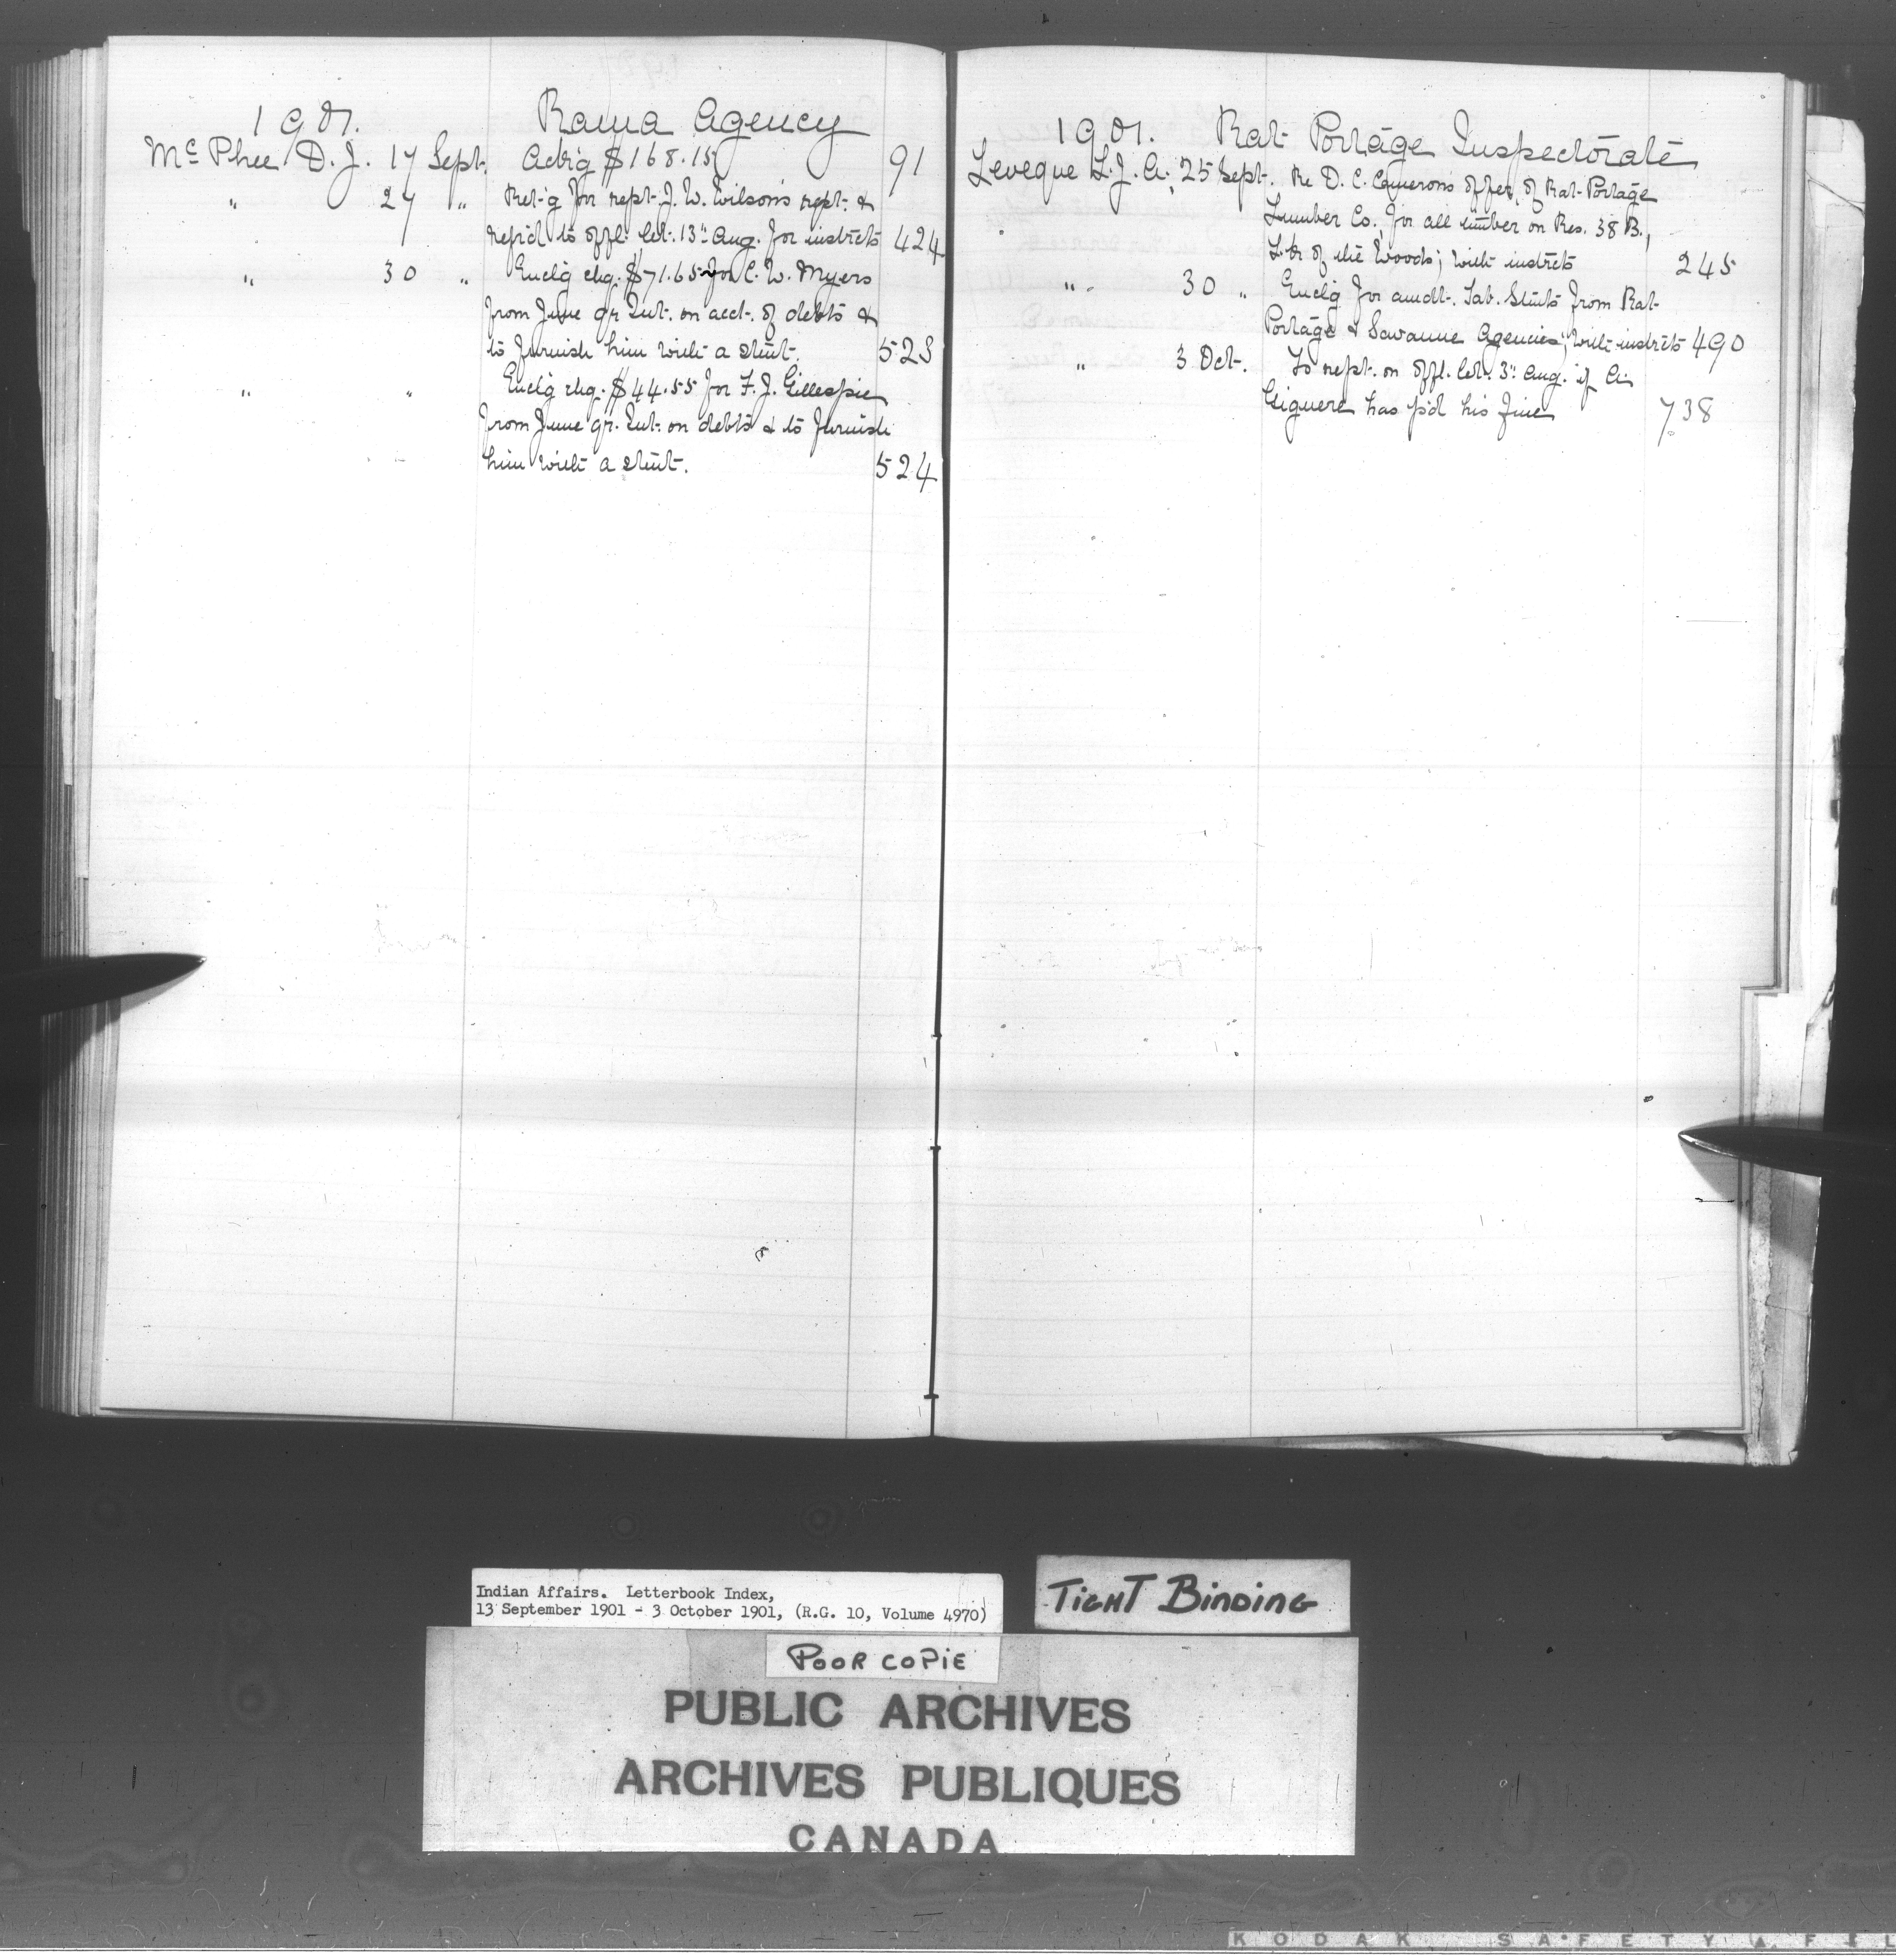 1901. Rama Agency
McPhee D. J. 17 Sept. Ack'g $168.15 91
" 27 " Ret'g for rept. J. W. Wilson's rept. &
rep'd to offl. let. 13" Aug. for instrcts 424
" 30 " Encl'g chq. $71.65 for C. W. Myers
from June qr. Int. on acct. of debts &
to furnish him with a stmt. 523
" " Encl'g chq. $44.55 for F. J. Gillespie
from June qr. Int. on debts & to furnish
him with a stmt. 524
1901. Rat Portage Inspectorate
Leveque L. J. A., 25 Sept. Re D. C. Cameron's offer, of Rat Portage
Lumber Co., for all timber on Res. 38 B.,
L. of the Woods; with instrcts 245
" 30 " Encl'g for amdt. Tab. Stmts from Rat
Portage & Savanne Agencies; with instrcts 490
" 3 Oct. To rept. on offl. let. 3" Aug. if A.
Giguere has p'd his fine 738
Indian Affairs. Letterbook Index,
13 September 1901 - 3 October 1901, (R.G. 10, Volume 4970)
TIGHT BINDING
POOR COPIE
PUBLIC ARCHIVES
ARCHIVES PUBLIQUES
CANADA
KODAK SAFETY FIL